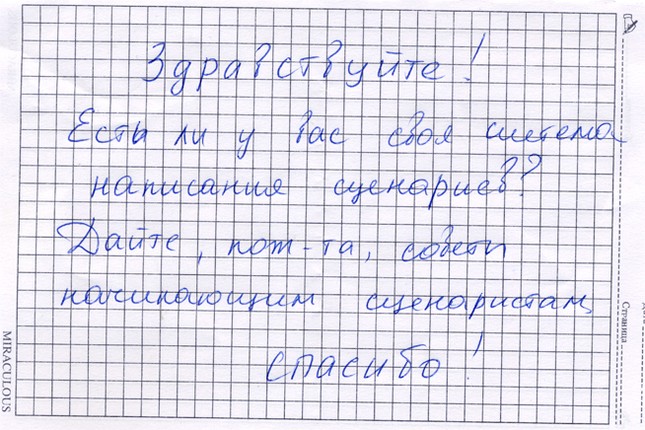 Здравствуйте!
Есть ли у вас своя система
написания сценариев??
Дайте, пож-та, советы
начинающим сценаристам,
спасибо!
MIRACULOUS
Страница